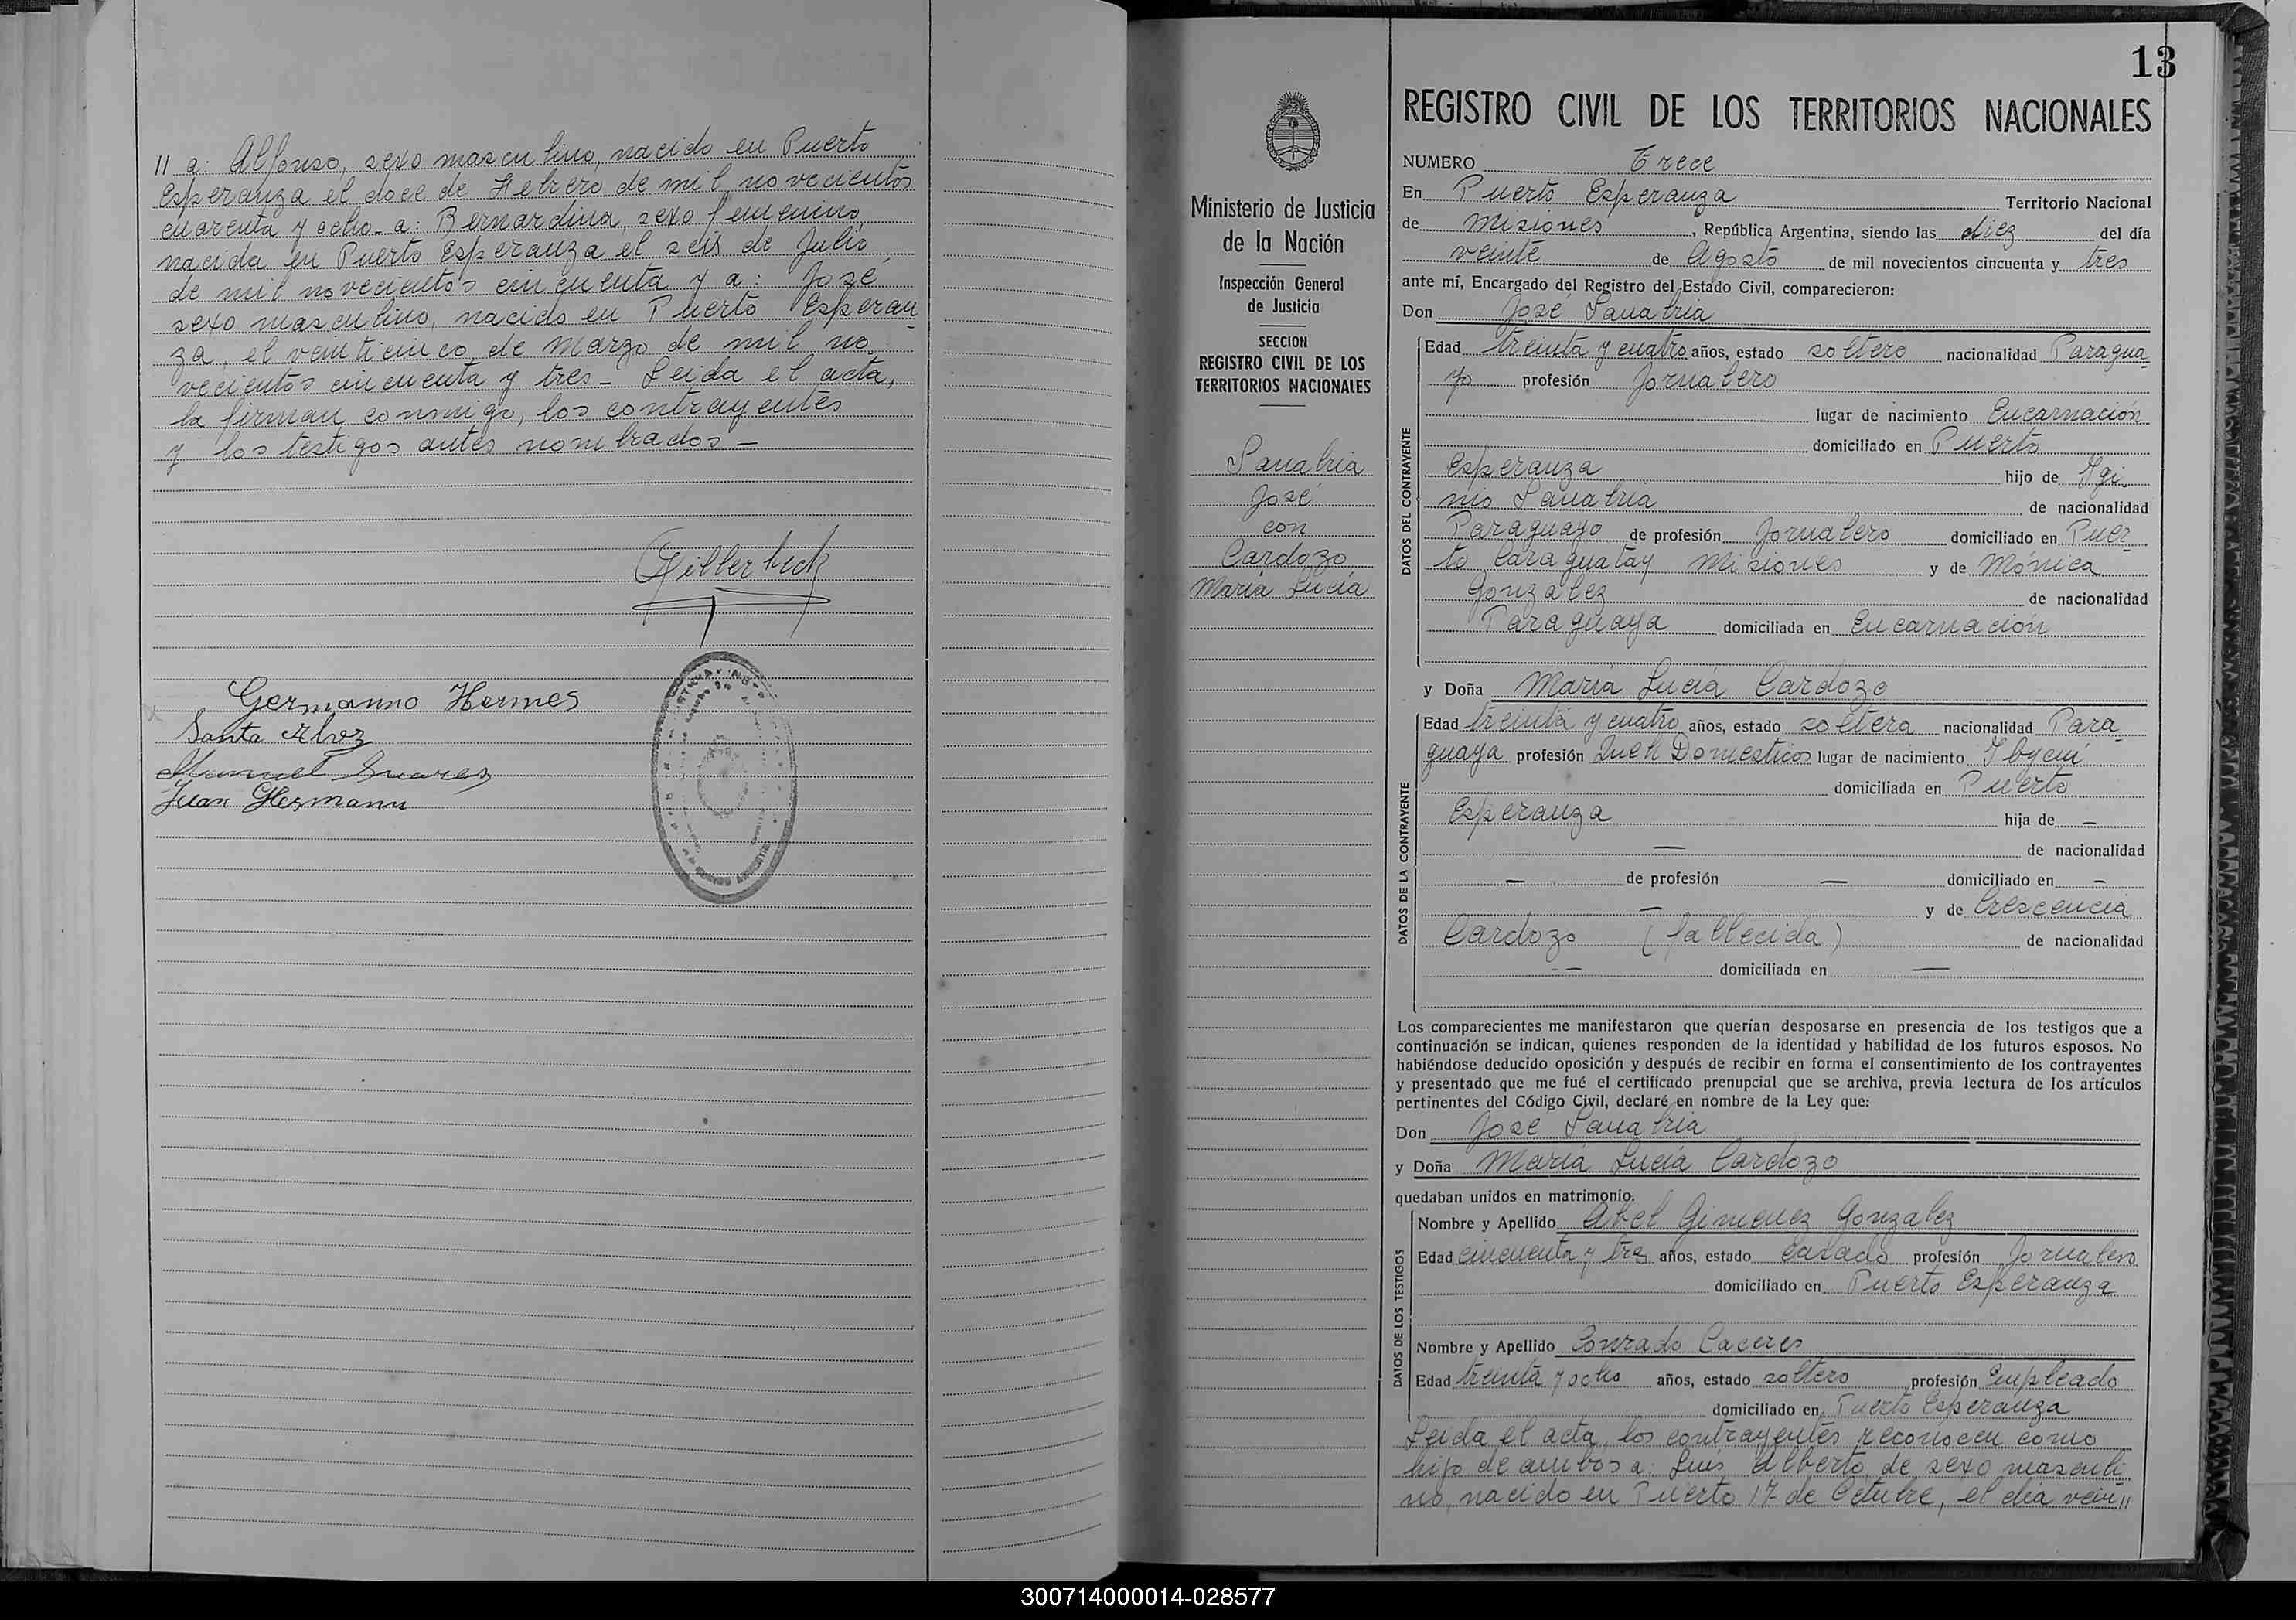 11 a: Alfonso, sexo masculino, nacido en Puerto
Esperanza el doce de Febrero de mil novecientos
cuarenta y ocho - a: Bernardina, sexo femenino,
nacida en Puerto Esperanza el seis de Julio
de mil novecientos cincuenta y a: José
sexo masculino, nacido en Puerto Esperan
za, el veinticinco de Marzo de mil no
vecientos cincuenta y tres - Leida el acta,
la firman conmigo, los contrayentes
y los testigos antes nombrados -
Germanno Hermes
Santa Alvez
Manuel Suarez
Juan Hermann
13
Ministerio de Justicia
de la Nación
Inspección General
de Justicia
SECCION
REGISTRO CIVIL DE LOS
TERRITORIOS NACIONALES
Sanabria
José
con
Cardozo
María Lucía
REGISTRO CIVIL DE LOS TERRITORIOS NACIONALES
NUMERO Trece
En Puerto Esperanza Territorio Nacional
de Misiones, República Argentina, siendo las diez del día
veinte de Agosto de mil novecientos cincuenta y tres
ante mí, Encargado del Registro del Estado Civil, comparecieron:
Don José Sanabria
DATOS DEL CONTRAYENTE
Edad treinta y cuatro años, estado soltero nacionalidad Paragua
yo profesión Jornalero
lugar de nacimiento Encarnación
domiciliado en Puerto
Esperanza hijo de Igi-
nio Sanabria de nacionalidad
Paraguayo de profesión Jornalero domiciliado en Puer-
to Caraguatay Misiones y de Mónica
Gonzalez de nacionalidad
Paraguaya domiciliada en Encarnación
y Doña María Lucía Cardozo
DATOS DE LA CONTRAYENTE
Edad treinta y cuatro años, estado soltera nacionalidad Para-
guaya profesión Queh Domesticos lugar de nacimiento Ibycuí
domiciliada en Puerto
Esperanza hija de —
— de nacionalidad
— de profesión — domiciliado en —
— y de Crescencia
Cardozo (fallecida) de nacionalidad
— domiciliada en —
Los comparecientes me manifestaron que querían desposarse en presencia de los testigos que a
continuación se indican, quienes responden de la identidad y habilidad de los futuros esposos. No
habiéndose deducido oposición y después de recibir en forma el consentimiento de los contrayentes
y presentado que me fué el certificado prenupcial que se archiva, previa lectura de los artículos
pertinentes del Código Civil, declaré en nombre de la Ley que:
Don José Sanabria
y Doña María Lucía Cardozo
quedaban unidos en matrimonio.
DATOS DE LOS TESTIGOS
Nombre y Apellido Abel Gimenez Gonzalez
Edad cincuenta y tres años, estado casado profesión Jornalero
domiciliado en Puerto Esperanza
Nombre y Apellido Conrado Caceres
Edad treinta y ocho años, estado soltero profesión Empleado
domiciliado en Puerto Esperanza
Leida el acta, los contrayentes reconocen como
hijo de ambos a: Luis Alberto, de sexo masculi-
no, nacido en Puerto 17 de Octubre, el día vein 11
300714000014-028577